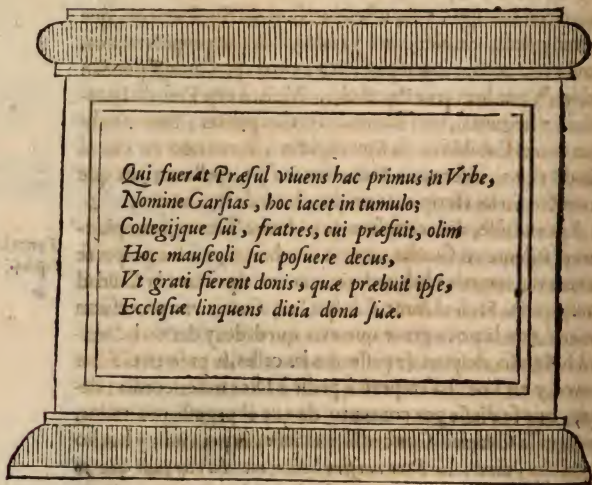 Qui fuerat Præſul viuens hac primus in Vrbe,
Nomine Garſias, hoc iacet in tumulo;
Collegijque ſui, fratres, cui præfuit, olim
Hoc mauſeoli ſic poſuere decus,
Vt grati fierent donis, quæ præbuit ipſe,
Eccleſiæ linquens ditia dona ſuæ.